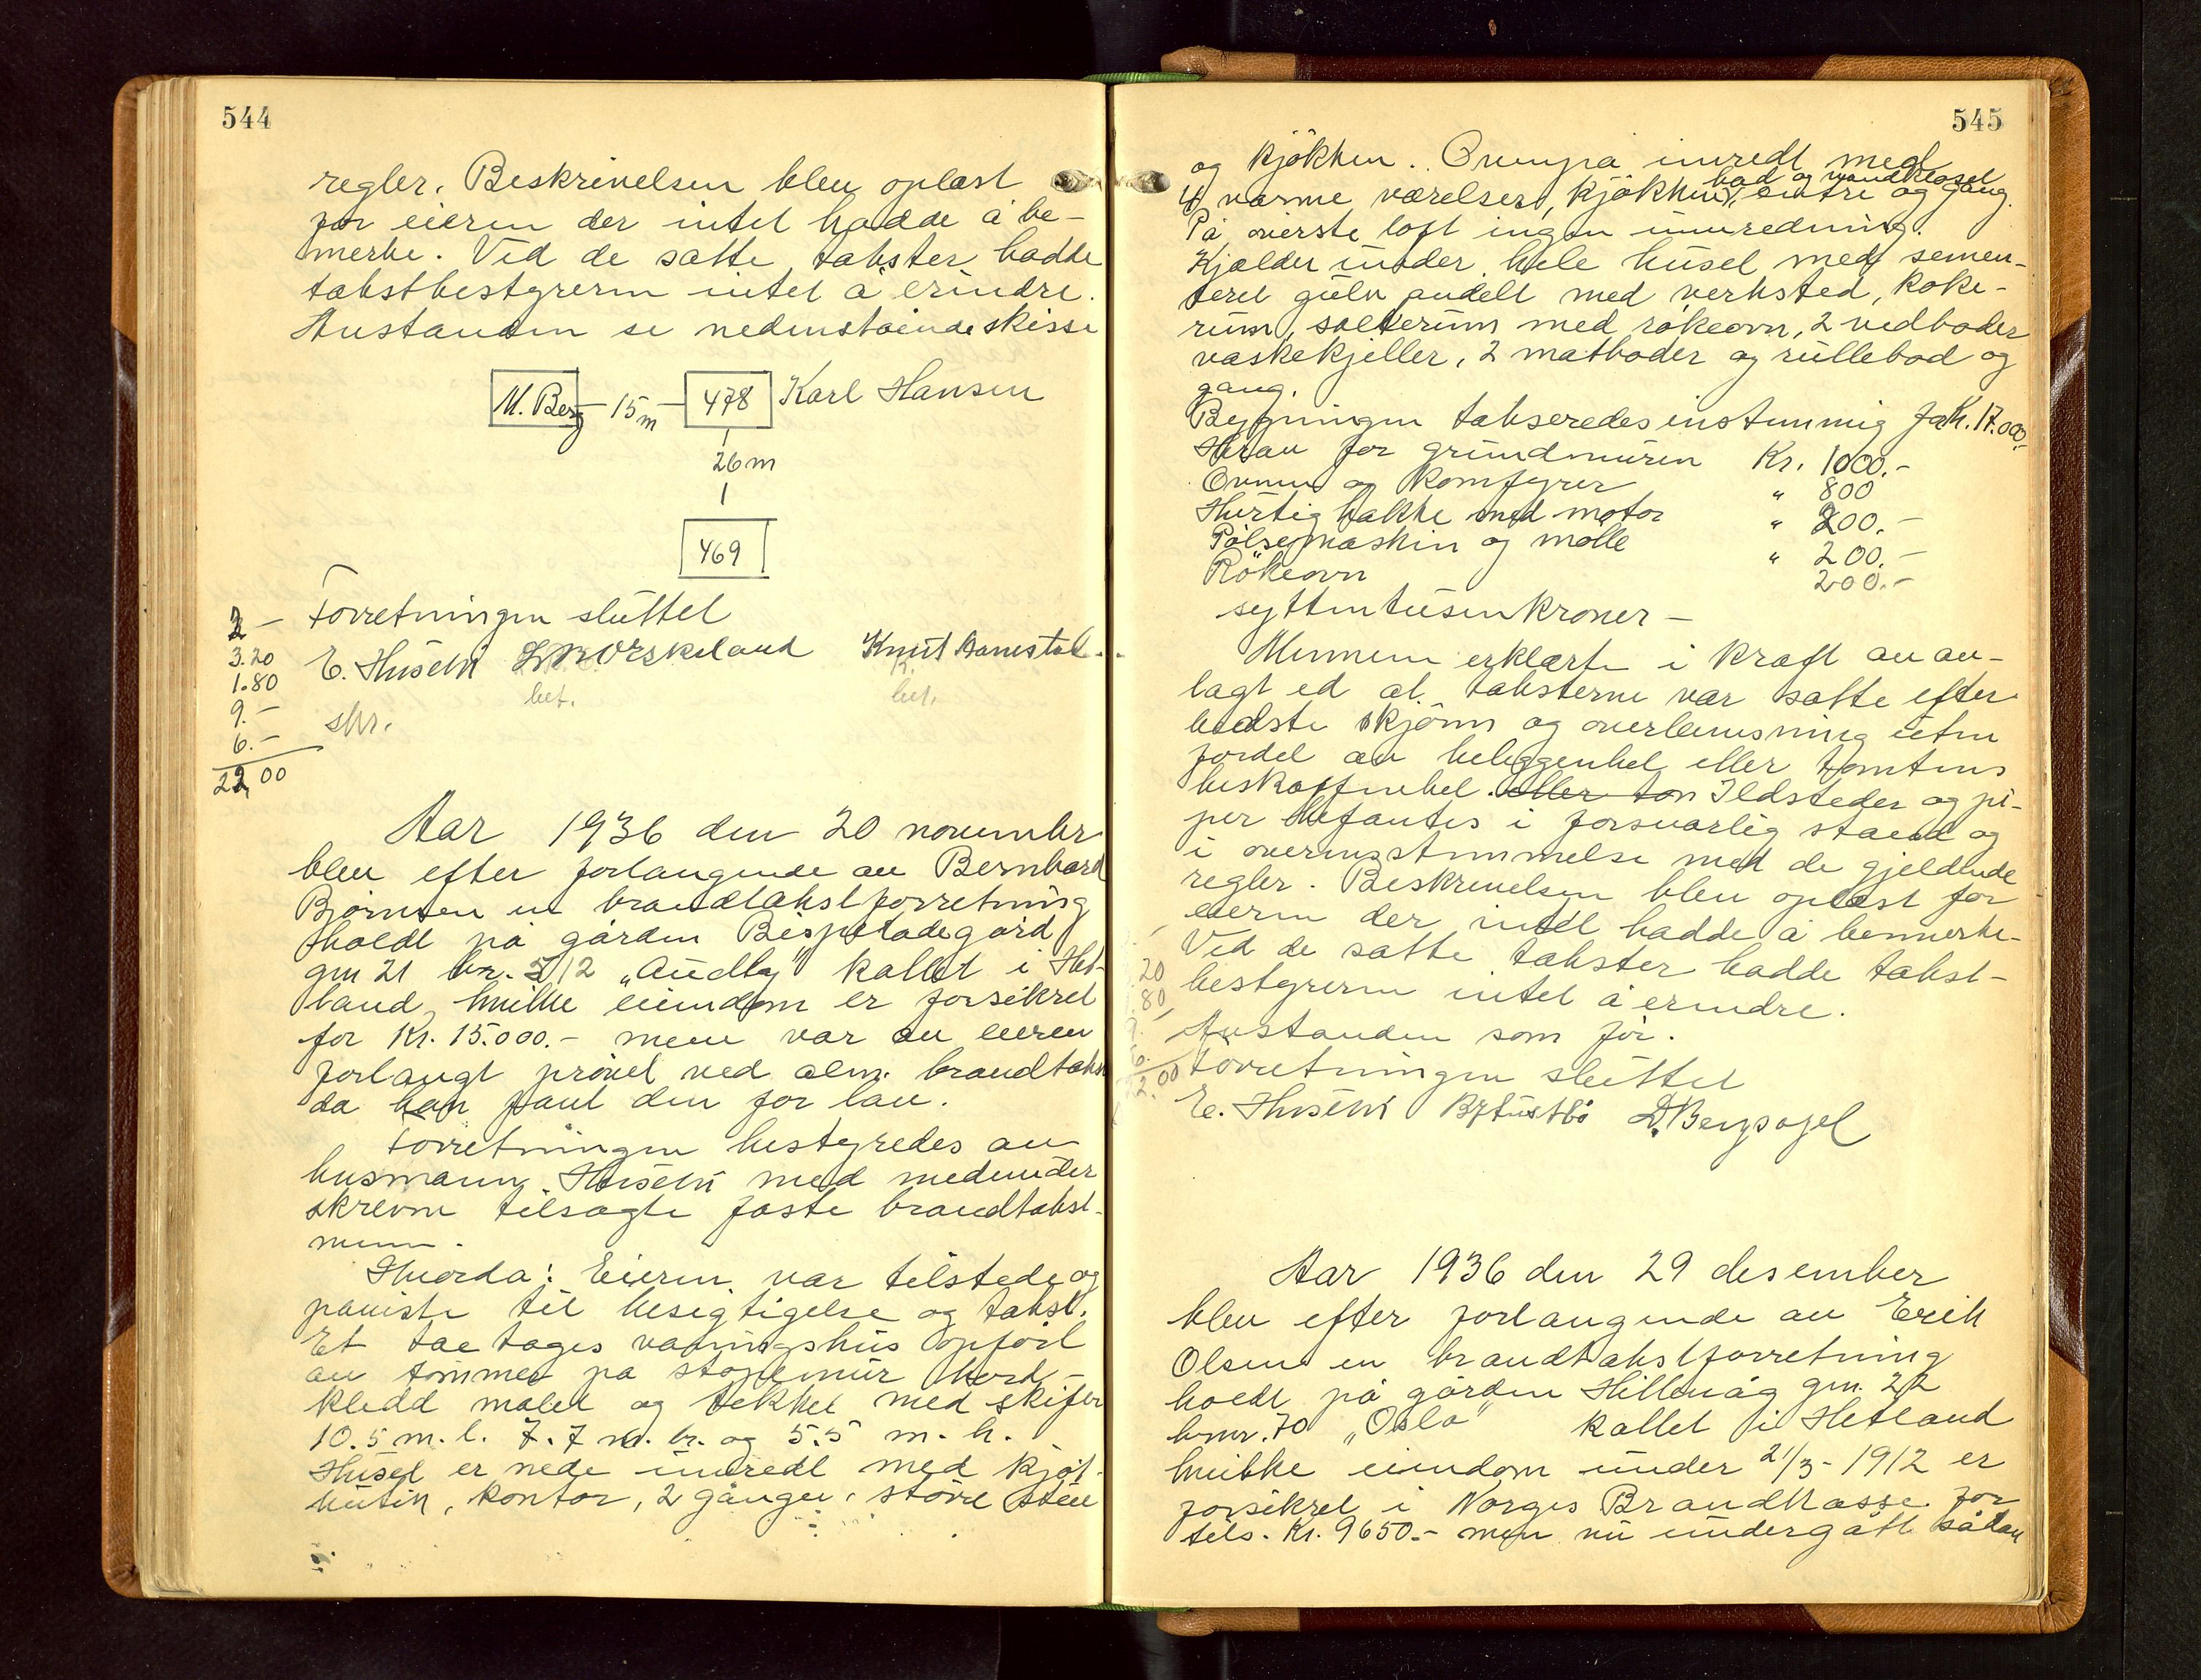 544
regler. Beskrivelsen blev oplæst
for eieren der intet hadde å be-
merke. Ved de satte takster hadde
takstbestyreren intet å erindre.
Avstanden se nedenståendeskisse
M. Berg - 15m - 478 Karl Hansen
26m
469
Forretningen sluttet
E. Husebø Knut
bet. bet.
skr.
2 -
3.20
1.80
9.-
6.-
22,00
Aar 1936 den 20 november
blev efter forlangende av Bernhard
Bjørnsen en brandtakstforretning
holdt på gården Bispeladegård
gnr 21 br. 512 "Audby" kallet i Het-
land, hvilke eiendom er forsikret
for Kr. 15.000.- men var av eieren
forlangt prøvet ved alm. brandtakst
da han fant den for lav.
Forretningen bestyredes av
lensmann Husebø med medunder
skrevne tilsagte faste brandtakst-
menn.
Hvorda: Eieren var tilstede og
påviste til besigtigelse og takst.
Et toe tages våningshus opført
av tømmer på støpemur bord-
kledd malet og tekket med skifer
10.5 m. l. 7.7 m. br. og 5.5 m. h.
Huset er nede innredt med kjøt-
butik, kontor, 2 ganger, større stue
545
og kjøkken. Ovenpå innredt med
bad og vandklosel
4 varme værelser, kjøkken, entre og gang.
På øverste loft ingen innredning.
Kjælder under hele huset med semen-
teret gulv avdelt med verksted, koke-
rum, salterum med røkeovn, 2 vedboder
vaskekjeller, 2 matboder og rullebod og
gang.
Bygningen takseredes enstemmig for Kr. 17.000.-
Herav for grundmuren Kr. 1000.-
Ovner og komfyrer " 800
Hurtighakke med motor " 200.-
Pølsemaskin og mølle " 200.-
Røkeovn 200.-
sytten tusen kroner -
Mennene erklærte i kraft av av-
lagt ed at taksterne var satte efter
bedste skjønn og overbevisning uten
fordel av beliggenhet eller tomtens
beskaffenhet. eller tom Ildsteder og pi-
per befantes i forsvarlig stand og
i overensstemmelse med de gjeldende
regler. Beskrivelsen blev oplæst for
eieren der intet hadde å bemerke.
Ved de satte takster hadde takst-
bestyreren intet å erindre.
Avstanden som før.
Forretningen sluttet
E. Husebø D. Bergsagel
20
80
2.00
Aar 1936 den 29 desember
blev efter forlangende av Erik
Olsen en brandtakstforretning
holdt på gården Hillevåg gnr. 22
bnr. 70 "Oslo" kallet i Hetland
hvilke eiendom under 21/3 - 1912 er
forsikret i Norges Brandkasse for
tils. Kr. 9650.- men nu undergått sådan